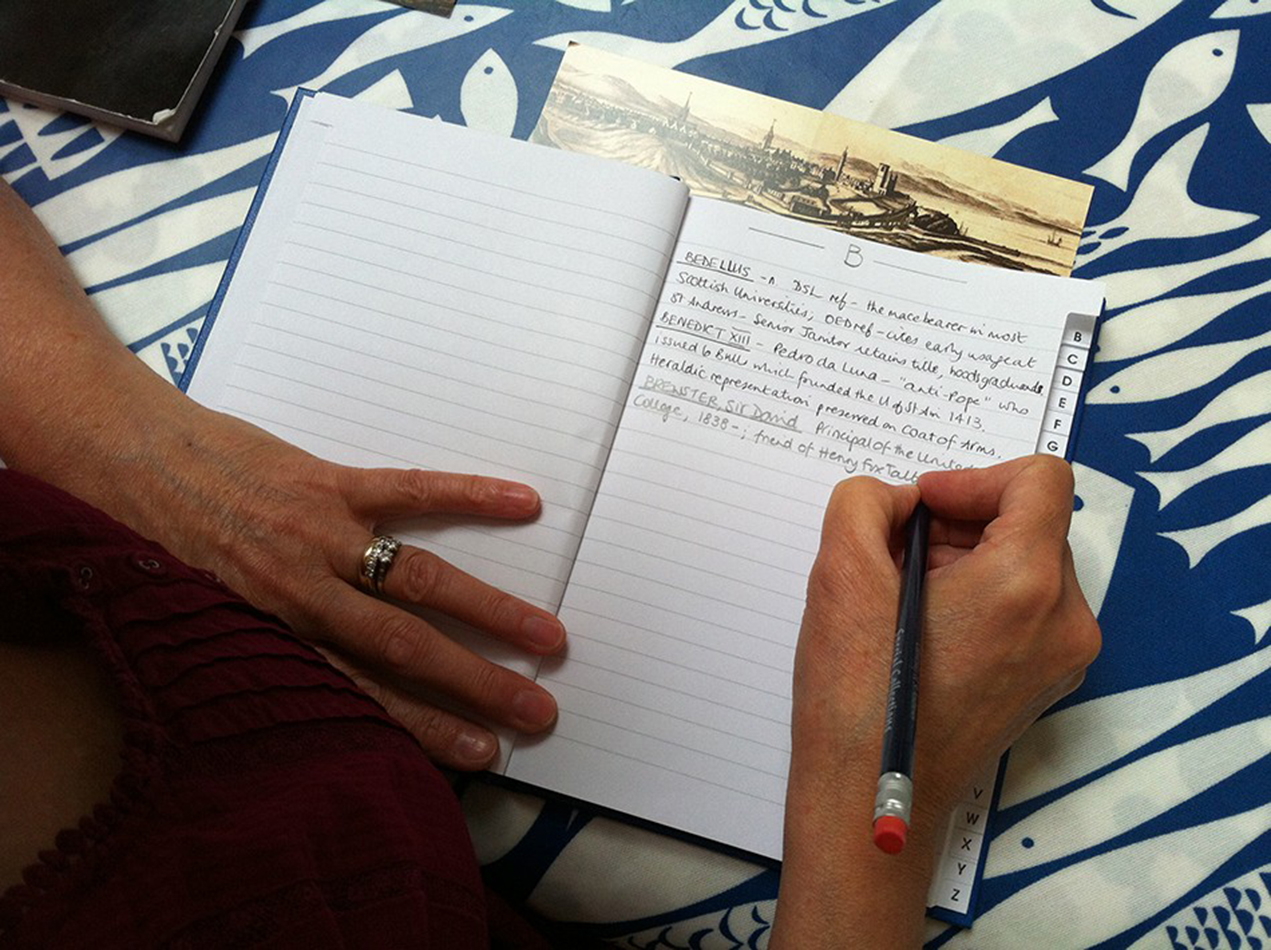 B
BEDELLUS - n DSL ref - the mace bearer in most
Scottish Universities; OED ref - cites early usage at
St Andrews - Senior Janitor retains title, hoods graduands
BENEDICT XIII - Pedro da Luna - "anti-Pope" who
issued 6 Bull which founded the U of St An 1413.
Heraldic representation preserved on Coat of Arms.
BREWSTER, Sir David Principal of the United
College, 1838- ; friend of Henry Fox Talb
B
C
D
E
F
G
V
W
X
Y
Z